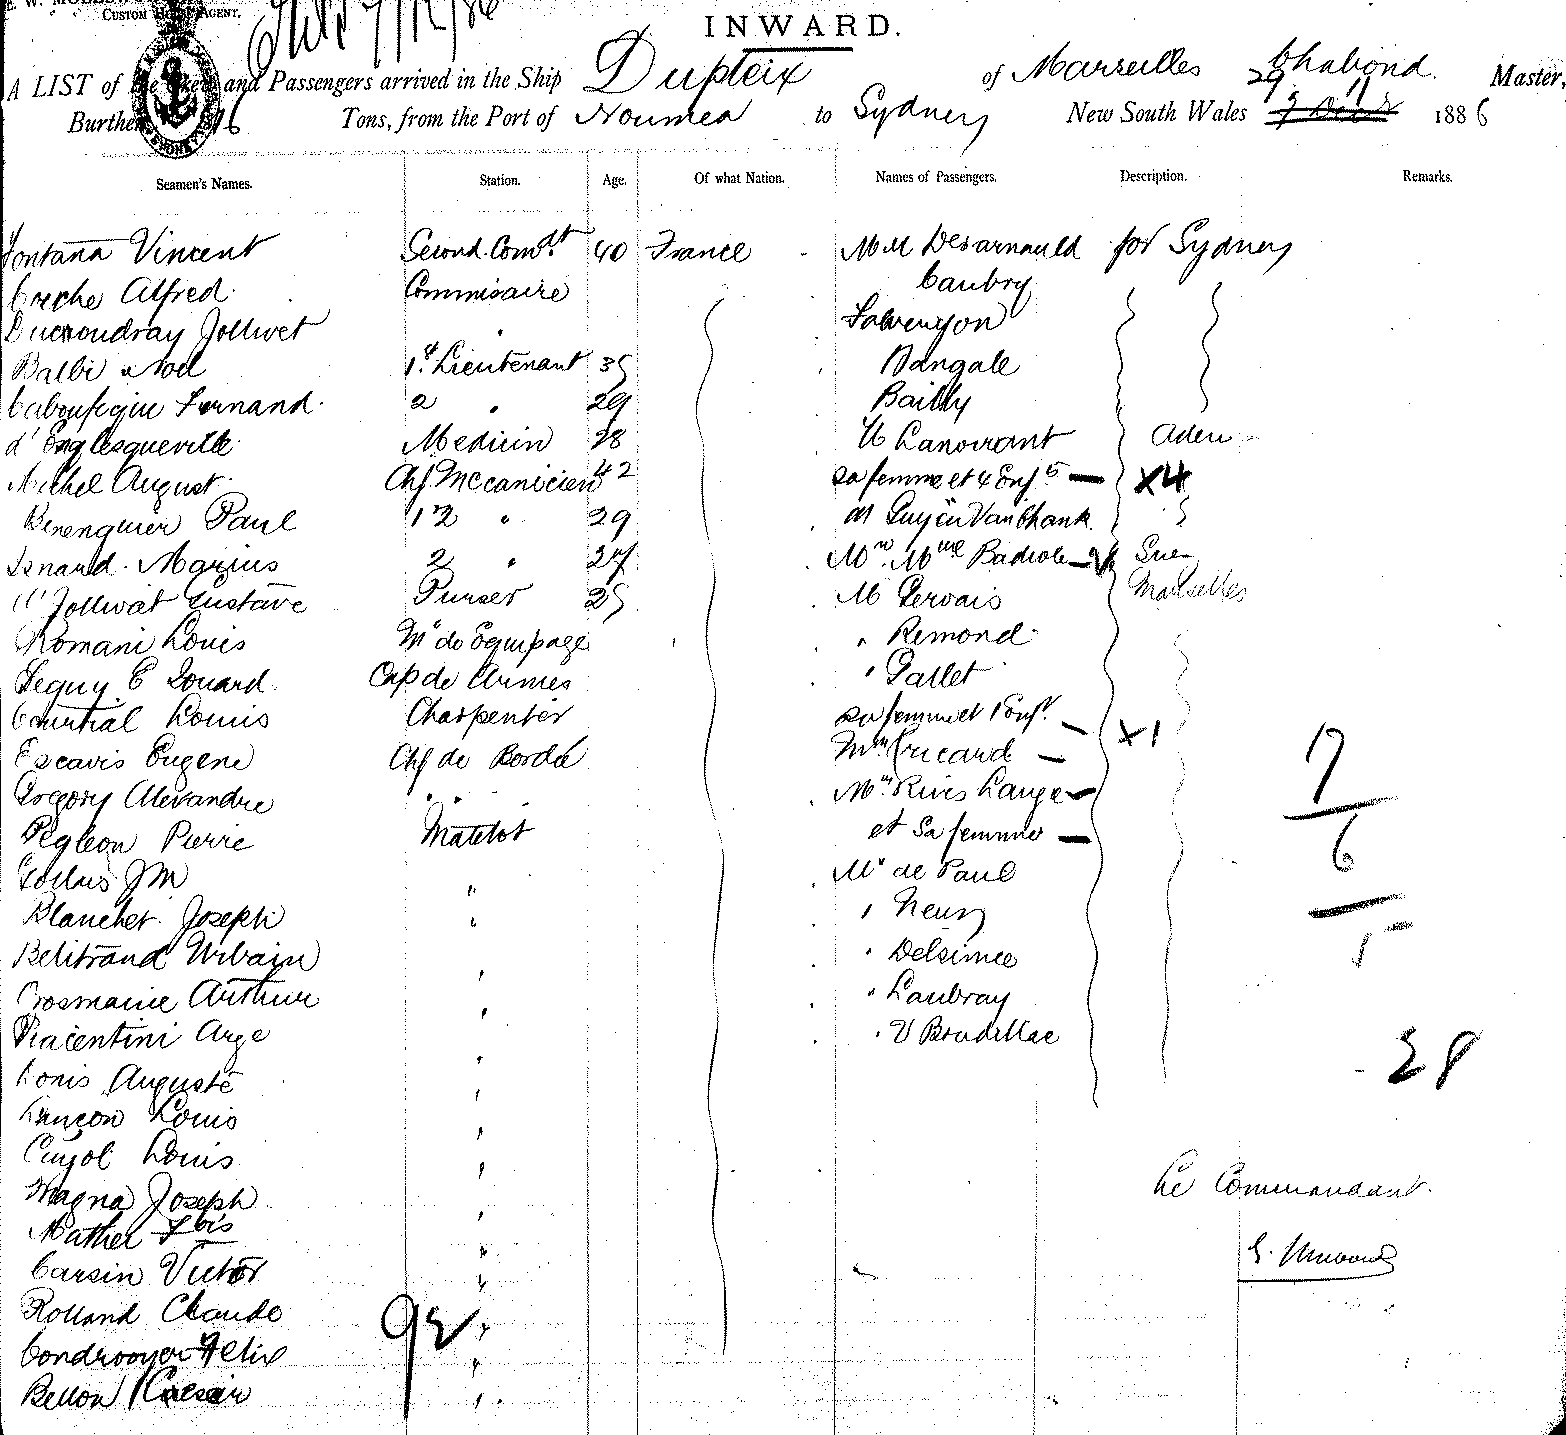 CUSTOM HOUSE AGENT.
INWARD.
A LIST of the Crew and Passengers arrived in the Ship Dupleix of Marseilles Chabond. Master,
Burthen Tons, from the Port of Noumea to Sydney New South Wales 29 11 1886
Seamen's Names. Station. Age. Of what Nation. Names of Passengers. Description. Remarks.
Fontana Vincent Second Comdt. 40 France MM Desarnauld for Sydney
Creche Alfred Commisaire Caubry
Ducoudray Jollivet " 
Balbi Noel 1st. Lieutenant 35 Dangale
Fernand 2 " 29 Bailly
d'Englesqueville Medicin 28 Aden
Michel August Chf. Mecanicien 42 sa femme et 4 Enfs — X4
Berenguier Paul 1 " 29
Isnard Marius 2 " 27 Mr. Mme Badiole Suez
Jollivat Gustave Purser 25 M Gervais Marseilles
Romani Louis Me de Equipage " Remond
Seguy Edouard Cap de Armes " Gallet
Courtial Louis Charpentier sa femme et 1 Enft. — X1
Escavis Eugene Chf de Bordé Mme Ricard — 7
Gregory Alexandre " " Mr Rives Lange
Pegleon Pierre Matelot et Sa femme — 6
JM " Mr de Paul
Blanchet Joseph " "
Belitrand Urbain " " Delsimee 5
Arthur " " Laubray
Piacentini Ange " " V Boudillac
Louis Auguste " 28
Lançon Louis "
Cuyol Louis "
Magna Joseph " Le Commandant.
Mather Fois "
Carsin Victor "
Rolland Claude 92 "
Felix "
Bellon Caesar "